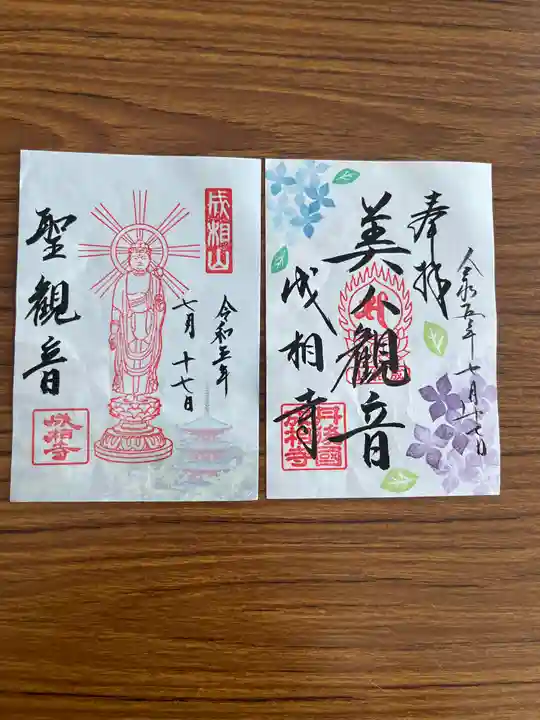 成相山
令和五年
七月十七日
聖観音
成相寺
奉拝
令和五年七月十七日
美人観音
成相寺
丹後國
成相寺